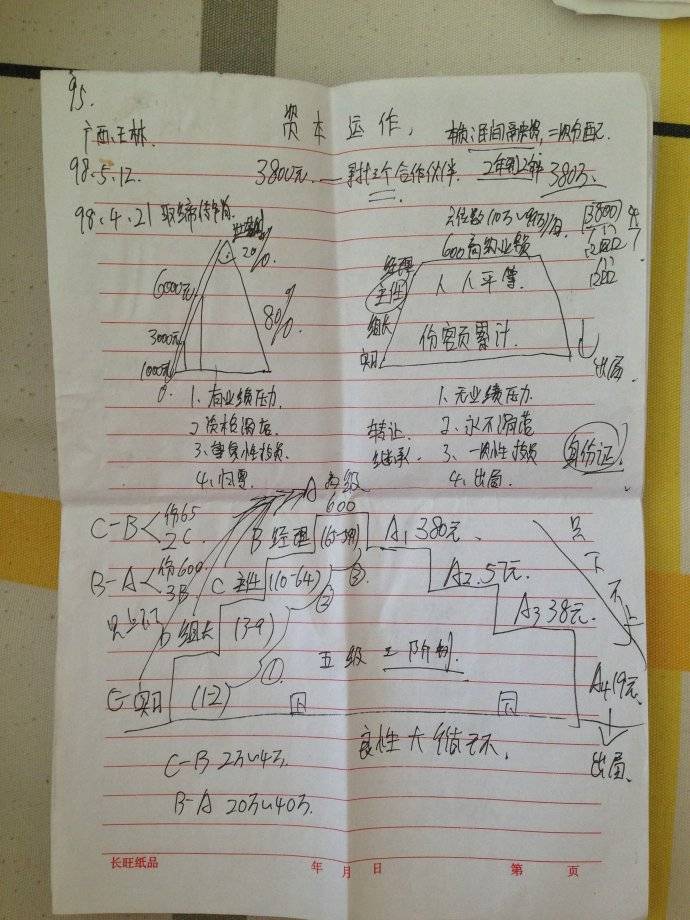 95.
资本运作,
广西、玉林.
本质:民间融资,二次分配.
98.5.12.
3800元—寻找三个合作伙伴. 2年到2年半 380万.
98、4、21 取缔传销.
20%
80%
6000元
3000元
1000元
0.
600高级业务员
经理
主任
组长
实习
人人平等.
份额累计.
出局.
1、有业绩压力.
3、重复性投资
4、归零.
1、无业绩压力.
3、一次性投资
4、出局.
转让.
继承.
身份证
A 高级
600
C-B<份65 2C.
B-A<份600. 3B
B 经理 (65-599)
C 主任 (10-64)
D 组长 (3-9)
E 实习 (1-2)
① ② ③
A1 380元.
A2.57元.
A3 38元.
A4 19元.
只下不上
出局.
五级三阶制.
良性大循环.
C-B 2万~4万.
B-A 20万~40万.
长旺纸品 年 月 日 第 页